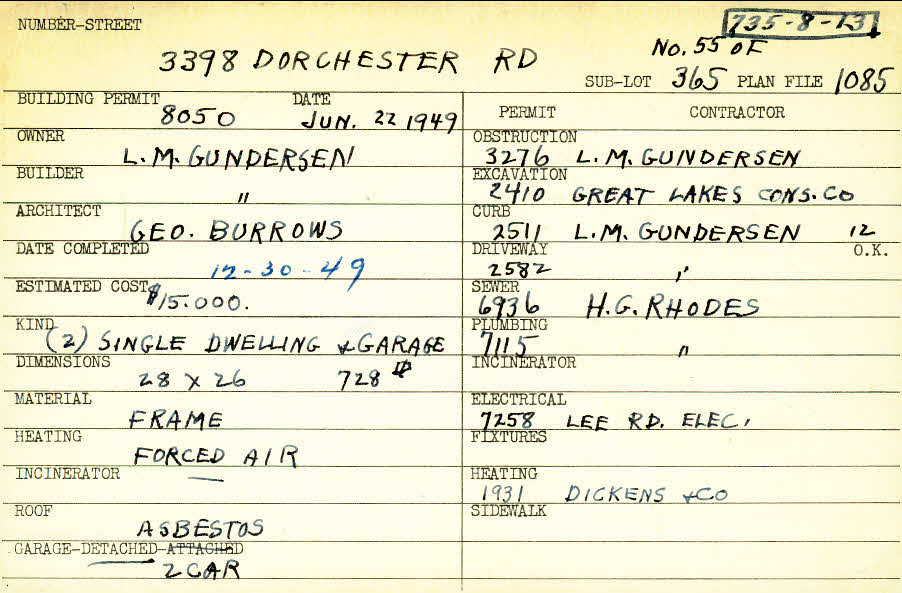 NUMBER-STREET
735-8-13
3398 DORCHESTER RD
No. 55 OF
SUB-LOT 365 PLAN FILE 1085
BUILDING PERMIT DATE
8050 JUN. 22 1949
OWNER
L.M. GUNDERSEN
BUILDER
"
ARCHITECT
GEO. BURROWS
DATE COMPLETED
12-30-49
ESTIMATED COST
$15.000.
KIND
(2) SINGLE DWELLING & GARAGE
DIMENSIONS
28 X 26 728
MATERIAL
FRAME
HEATING
FORCED AIR
INCINERATOR
—
ROOF
ASBESTOS
GARAGE-DETACHED-ATTACHED
2 CAR
PERMIT CONTRACTOR
OBSTRUCTION
3276 L.M. GUNDERSEN
EXCAVATION
2410 GREAT LAKES CONS. CO
CURB
2511 L.M. GUNDERSEN 12
DRIVEWAY O.K.
2582 "
SEWER
6936 H.G. RHODES
PLUMBING
7115 "
INCINERATOR
ELECTRICAL
7258 LEE RD. ELEC.
FIXTURES
HEATING
1931 DICKENS & CO
SIDEWALK